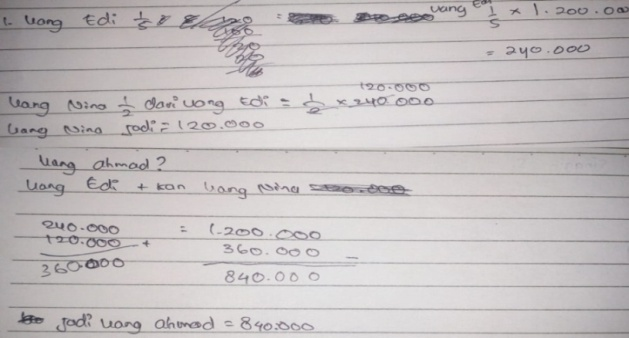 1. Uang Edi 1/5 x = uang Edi 1/5 x 1.200.000
= 240.000
120.000
Uang Nina 1/2 dari uang Edi = 1/2 x 240.000
Uang Nina jadi = 120.000
Uang ahmad?
Uang Edi + kan Uang Nina
240.000 = 1.200.000
120.000 + 360.000 -
360.000 840.000
jadi uang ahmad = 840.000